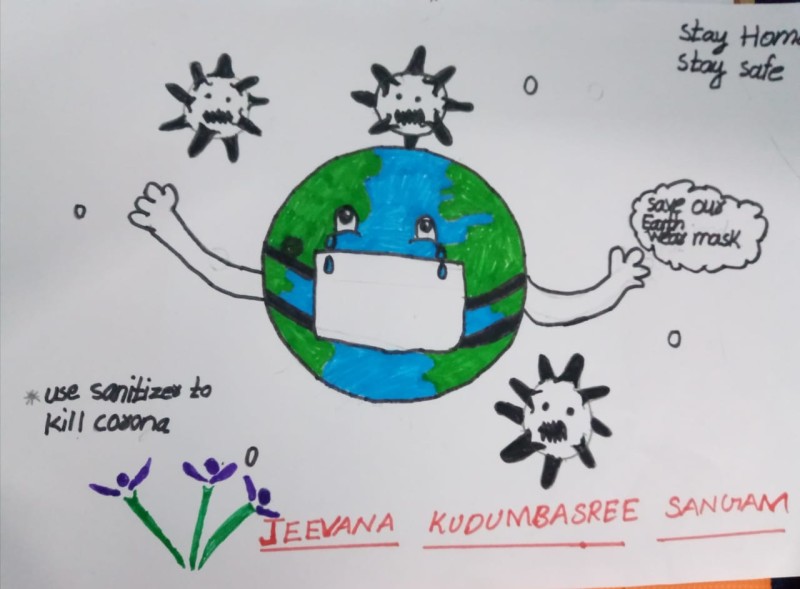 stay Home
stay safe
save our
Earth
wear mask
* use sanitizer to
kill corona
JEEVANA KUDUMBASREE SANGAM